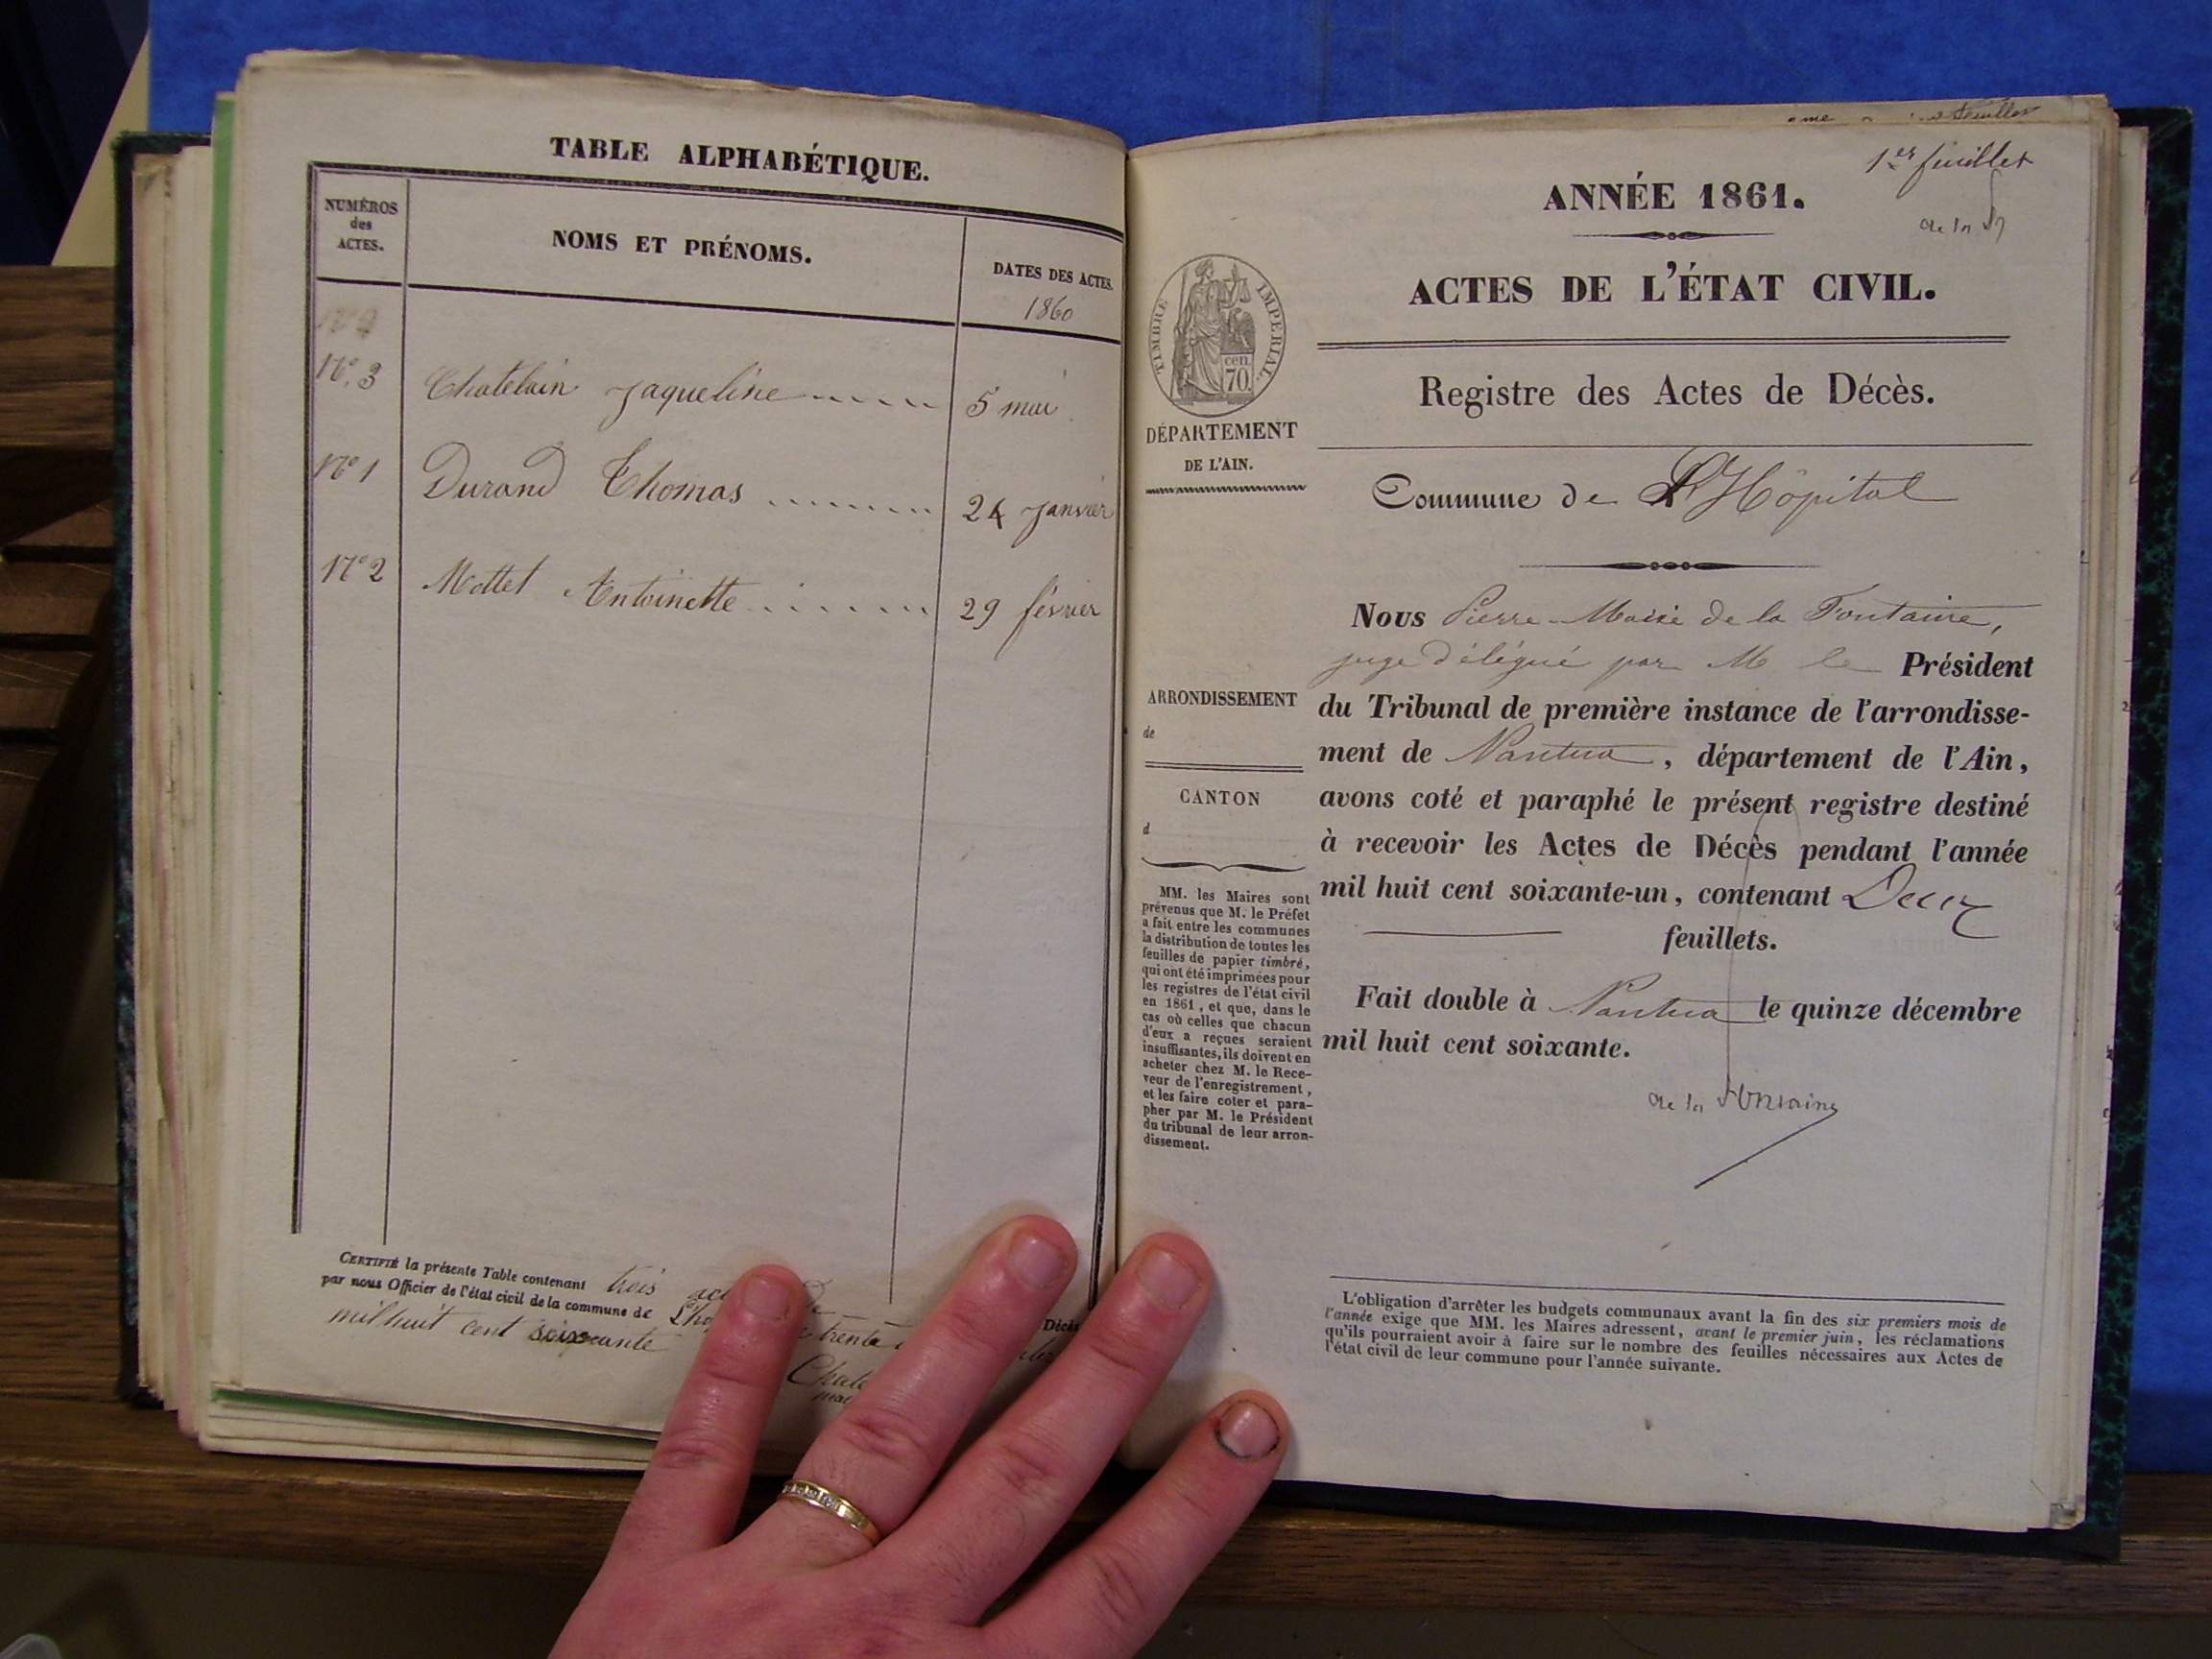 TABLE ALPHABÉTIQUE.
NUMÉROS
des
ACTES.
NOMS ET PRÉNOMS.
DATES DES ACTES.
1860
N° 3 Chatelain Jaqueline 5 mai
N° 1 Durand Thomas 24 Janvier
N° 2 Mottet Antoinette 29 février
CERTIFIÉ la présente Table contenant trois
par nous Officier de l'état civil de la commune de trente
mil huit cent soixante
Décès
1er feuillet
de la
ANNÉE 1861.
ACTES DE L'ÉTAT CIVIL.
TIMBRE IMPERIAL
cen
70.
Registre des Actes de Décès.
DÉPARTEMENT
DE L'AIN.
Commune de L'Hôpital
Nous Pierre-Marie de la Fontaine,
juge délégué par M le Président
du Tribunal de première instance de l'arrondisse-
ment de Nantua, département de l'Ain,
avons coté et paraphé le présent registre destiné
à recevoir les Actes de Décès pendant l'année
mil huit cent soixante-un, contenant Deux
feuillets.
Fait double à Nantua le quinze décembre
mil huit cent soixante.
de la Fontaine
ARRONDISSEMENT
de
CANTON
d
MM. les Maires sont
prévenus que M. le Préfet
a fait entre les communes
la distribution de toutes les
feuilles de papier timbré,
qui ont été imprimées pour
les registres de l'état civil
en 1861, et que, dans le
cas où celles que chacun
d'eux a reçues seraient
insuffisantes, ils doivent en
acheter chez M. le Rece-
veur de l'enregistrement,
et les faire coter et para-
pher par M. le Président
du tribunal de leur arron-
dissement.
L'obligation d'arrêter les budgets communaux avant la fin des six premiers mois de
l'année exige que MM. les Maires adressent, avant le premier juin, les réclamations
qu'ils pourraient avoir à faire sur le nombre des feuilles nécessaires aux Actes de
l'état civil de leur commune pour l'année suivante.